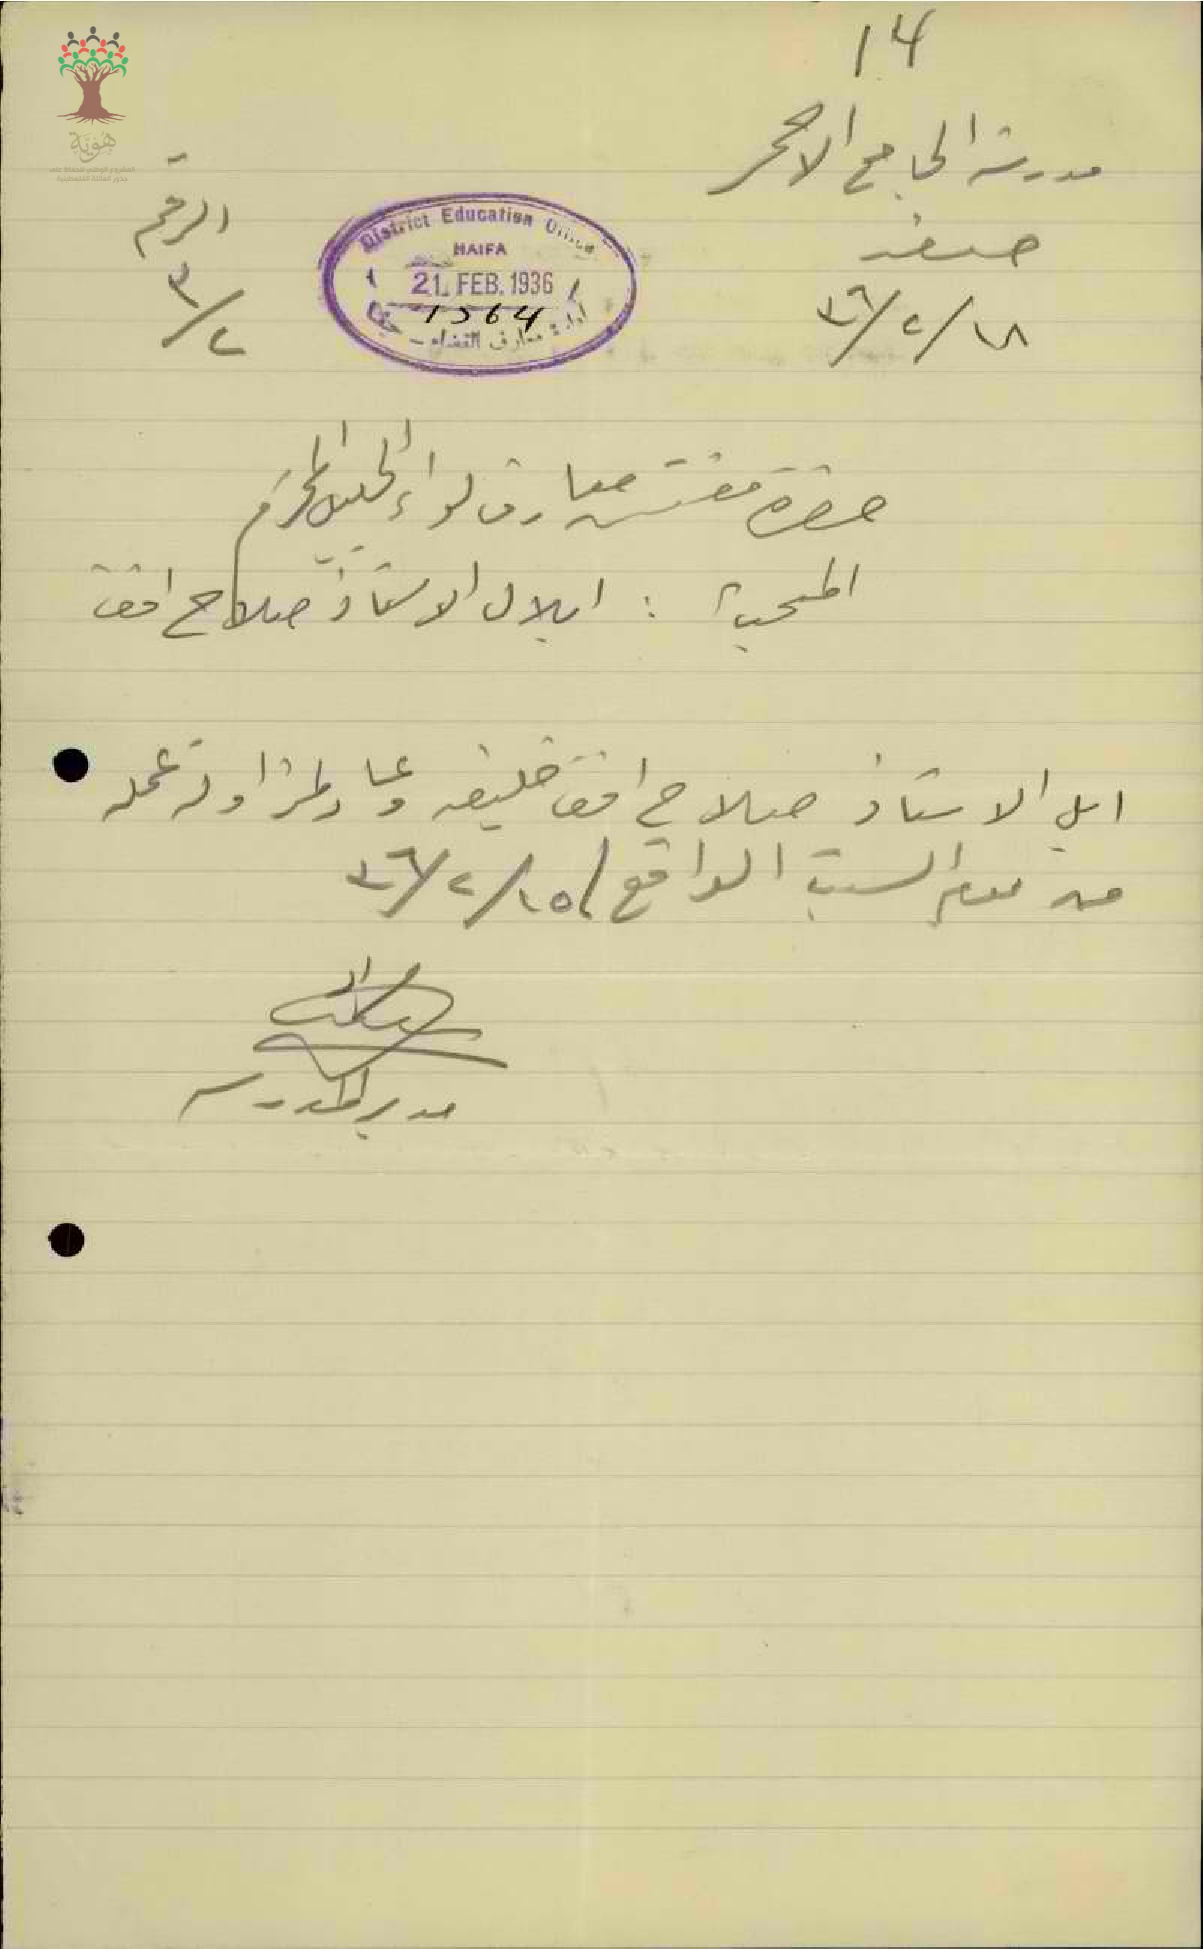 14
مدرسة الجامع الاحمر
صفد
١٨/٢/٣٦
الرقم
٣/٢
هوية
District Education Office
HAIFA
21. FEB. 1936
1564
ادارة معارف القضاء - حيفا
حضرة مفتش معارف لواء الجليل المحترم
ابلال الاستاذ صلاح افندي
ابل الاستاذ صلاح افندي خليفه وعاد لمزاولة عمله
من يوم السبت الواقع ١٥/٢/٣٦
مدير المدرسه